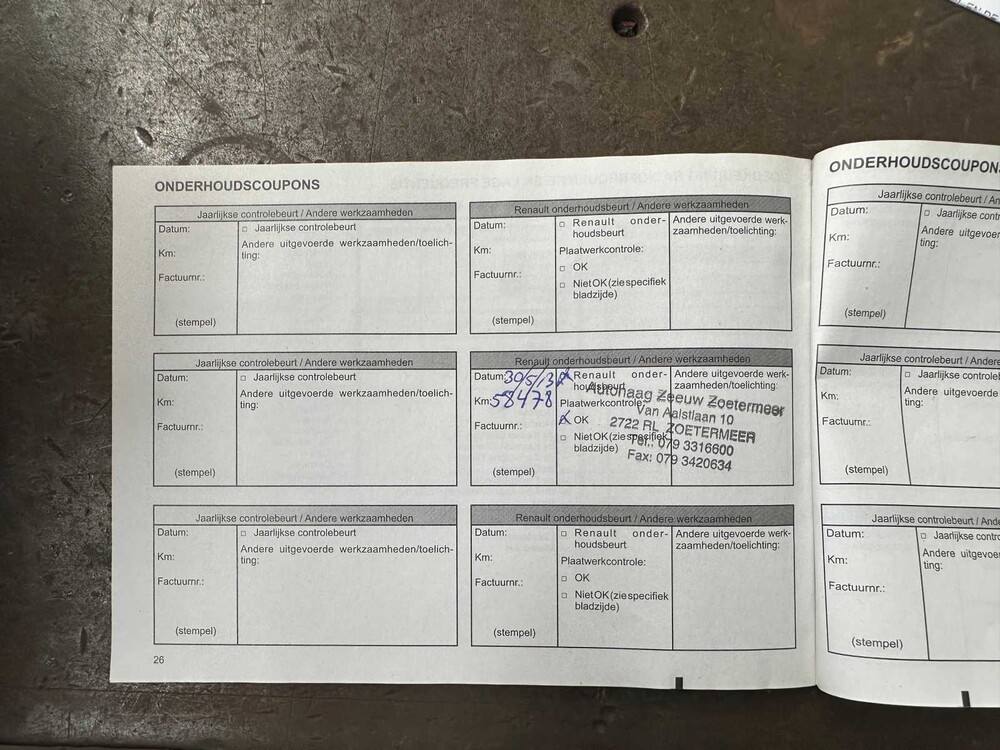 ONDERHOUDSCOUPONS
Jaarlijkse controlebeurt / Andere werkzaamheden
Datum:
Km:
Factuurnr.:
(stempel)
□ Jaarlijkse controlebeurt
Andere uitgevoerde werkzaamheden/toelich-
ting:
Renault onderhoudsbeurt / Andere werkzaamheden
Datum:
Km:
Factuurnr.:
(stempel)
□ Renault onder-
houdsbeurt
Plaatwerkcontrole:
□ OK
□ Niet OK (zie specifiek
bladzijde)
Andere uitgevoerde werk-
zaamheden/toelichting:
Jaarlijkse controlebeurt / Andere werkzaamheden
Datum:
Km:
Factuurnr.:
(stempel)
□ Jaarlijkse controlebeurt
Andere uitgevoerde werkzaamheden/toelich-
ting:
Renault onderhoudsbeurt / Andere werkzaamheden
Datum: 30/5/13
Km: 58478
Factuurnr.:
(stempel)
Renault onder-
houdsbeurt
Plaatwerkcontrole:
OK
□ Niet OK (zie specifiek
bladzijde)
Andere uitgevoerde werk-
zaamheden/toelichting:
Autohaag Zeeuw Zoetermeer
Van Aalstlaan 10
2722 RL ZOETERMEER
Tel.: 079 3316600
Fax: 079 3420634
Jaarlijkse controlebeurt / Andere werkzaamheden
Datum:
Km:
Factuurnr.:
(stempel)
□ Jaarlijkse controlebeurt
Andere uitgevoerde werkzaamheden/toelich-
ting:
Renault onderhoudsbeurt / Andere werkzaamheden
Datum:
Km:
Factuurnr.:
(stempel)
□ Renault onder-
houdsbeurt
Plaatwerkcontrole:
□ OK
□ Niet OK (zie specifiek
bladzijde)
Andere uitgevoerde werk-
zaamheden/toelichting:
26
ONDERHOUDSCOUPON
Jaarlijkse controlebeurt / An
Datum:
Km:
Factuurnr.:
(stempel)
□ Jaarlijkse cont
Andere uitgevoe
ting:
Jaarlijkse controlebeurt / Andere
Datum:
Km:
Factuurnr.:
(stempel)
□ Jaarlijkse contr
Andere uitgevoerde
ting:
Jaarlijkse controlebeurt / Ande
Datum:
Km:
Factuurnr.:
(stempel)
□ Jaarlijkse contro
Andere uitgevoe
ting: